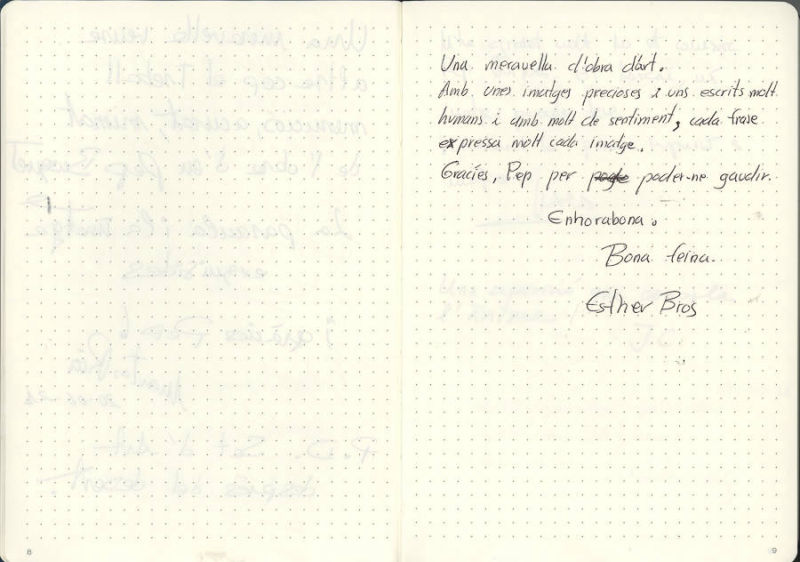 Una meravella d'obra d'art.
Amb unes imatges precioses i uns escrits molt
humans i amb molt de sentiment, cada frase
expressa molt cada imatge.
Gracies, Pep per poder-ne gaudir.
Enhorabona.
Bona feina.
Esther Bros
8
9